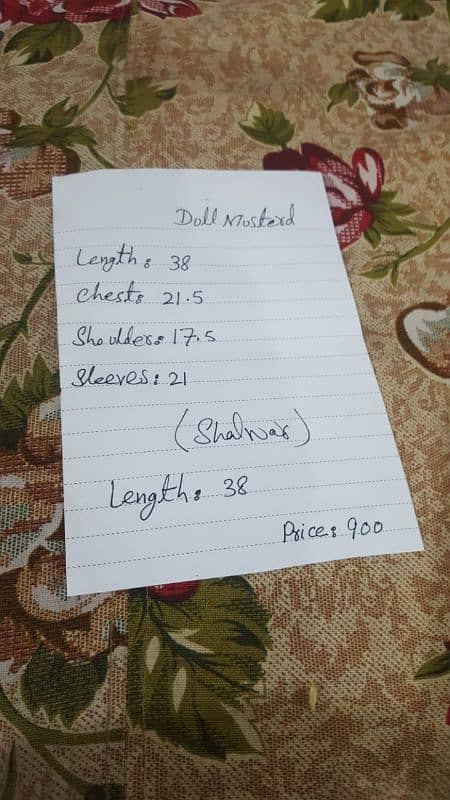 Dull Musterd
Length: 38
Chest: 21.5
Shoulder: 17.5
Sleeves: 21
(Shalwar)
Length: 38
Price: 900